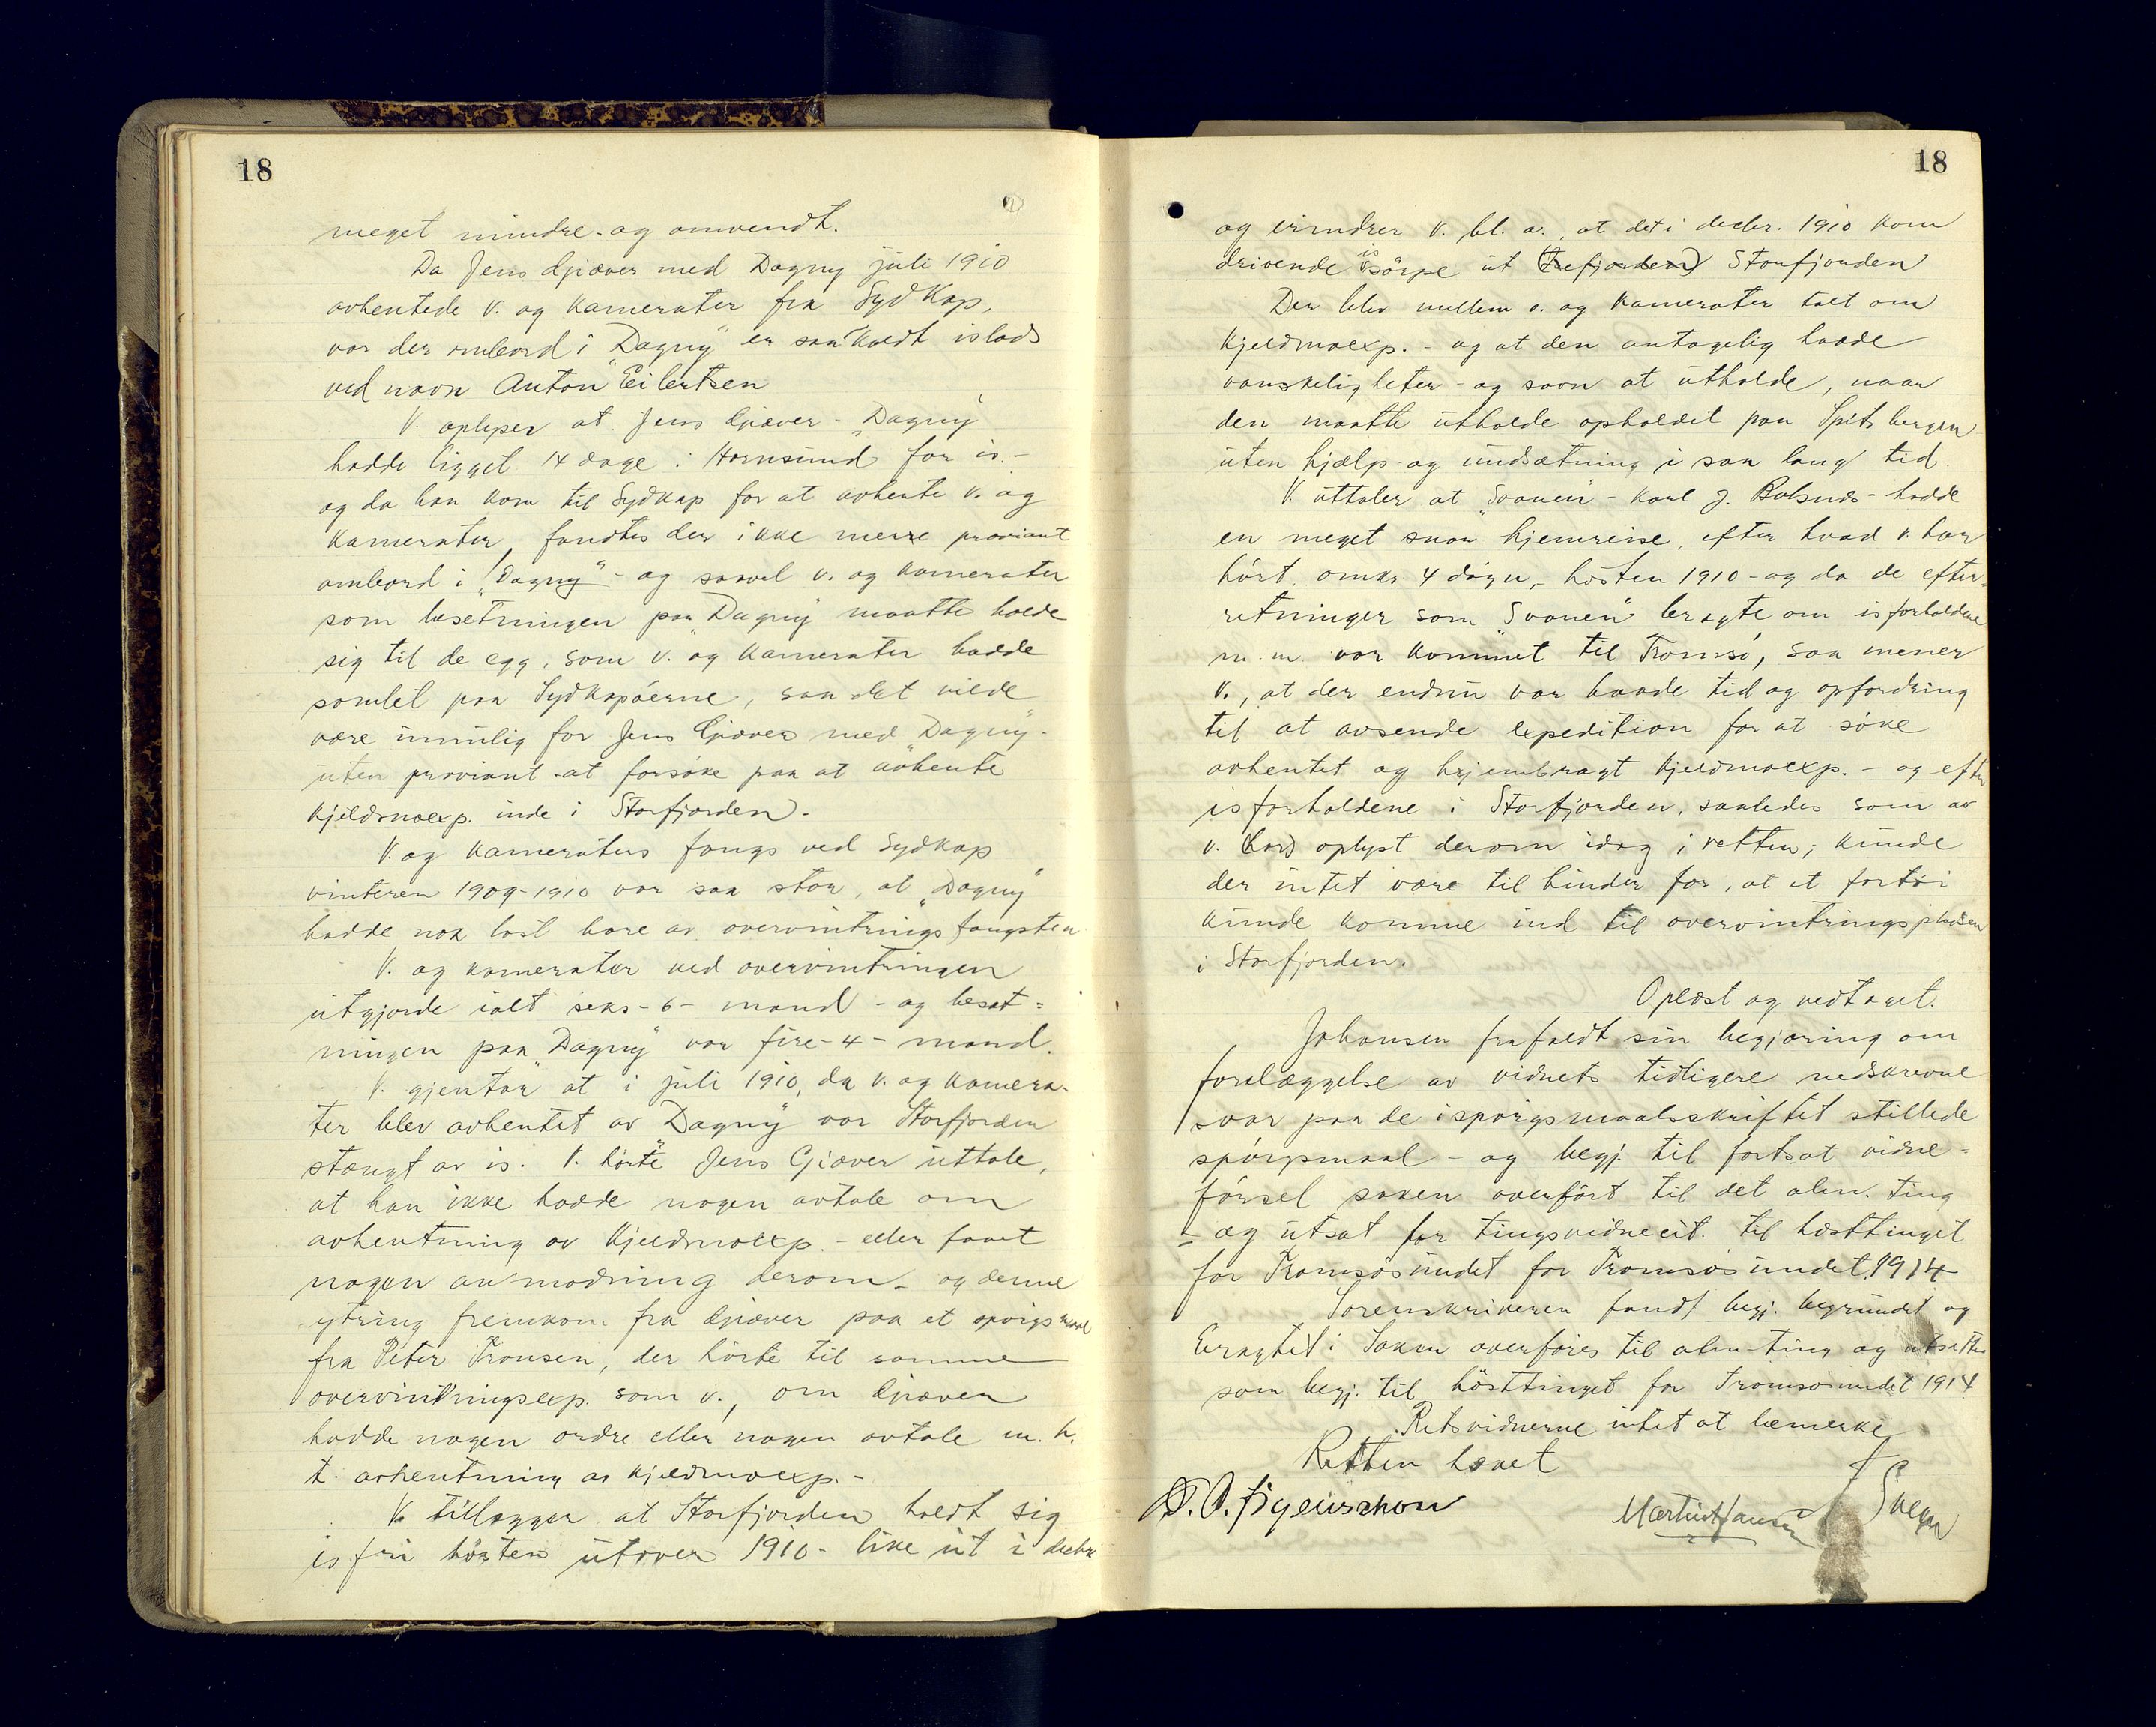 18
meget mindre - og omvendt.
Da Jens Gjæver med Dagny juli 1910
avhentede v. og kamerater fra Sydkap,
var der ombord i "Dagny" en saakaldt islods
ved navn Anton Eilertsen
V. oplyser at Jens Gjæver - "Dagny"
hadde ligget 14 dage i Hornsund for is. -
og da han kom til Sydkap for at avhente v. og
kamerater, fandtes der ikke mere proviant
ombord i "Dagny" - og saavel v. og kamerater
som besetningen paa "Dagny" maatte holde
sig til de egg, som v. og kamerater hadde
samlet paa Sydkapøerne, saa det vilde
være umulig for Jens Gjæver med "Dagny" -
uten proviant - at forsøke paa at avhente
Kjeldsnoexp. inde i Storfjorden. -
V. og kameraters fangs ved Sydkap
vinteren 1909-1910 var saa stor, at "Dagny"
hadde nok last bare av overvintringsfangsten
V. og kamerater ved overvintringen
utgjorde ialt seks - 6 - mand - og besæt=
ningen paa "Dagny" var fire - 4 - mand.
V. gjentar at i juli 1910, da v. og kamera-
ter blev avhentet av "Dagny" var Storfjorden
stængt av is. V. hørte Jens Gjæver uttale,
at han ikke hadde nogen avtale om
avhentning av Kjeldsnoexp. - eller faaet
nogen anmodning derom - og denne
ytring fremkom fra Gjæver paa et spørgsmaal
fra Peter Transen, der hørte til samme
overvintringsexp. som v., om Gjæver
hadde nogen ordre eller nogen avtale m. h.
t. avhentning av Kjeldsnoexp. -
V. tillægger at Storfjorden holdt sig
isfri høsten utover 1910 - like ut i decbr
18
og erindrer v. bl. a. at det i decbr. 1910 kom
drivende issørpe ut (Isefjorden) Storfjorden
Der blev mellem v. og kamerater talt om
Kjeldsnoexp. - og at den antagelig hadde
vanskeligheter - og savn at utholde, naar
den maatte utholde opholdet paa Spitsbergen
uten hjælp og undsætning i saa lang tid.
V. uttaler at "Svanen" - Karl J. - hadde
en meget snar hjemreise, efter hvad v. har
hørt omkr 4 døgn, - høsten 1910 - og da de efter-
retninger som "Svanen" bragte om isforholdene
m. m. var kommet til Tromsø, saa mener
v., at der endnu var baade tid og opfordring
til at avsende expedition for at søke
avhentet og hjembragt Kjeldsnoexp. - og efter
isforholdene i Storfjorden, saaledes som av
v. (har) oplyst derom idag i retten, kunde
der intet være til hinder for, at et fartøi
kunde komme ind til overvintringspladsen
i Storfjorden.
Oplæst og vedtaget.
Johansen frafaldt sin begjæring om
forelæggelse av vidnets tidligere nedskrevne
svar paa de i spørgsmaalsskriftet stillede
spørgsmaal - og begj. til fortsat vidne=
førsel saken overført til det alm. ting
- og utsat for tingsvidnecit. til høsttinget
for Tromsøsundet for Tromsøsundet 1914
Sorenskriveren fandt begj. begrundet og
Eragtet: Saken overføres til alm. ting og utsættes
som begj. til høsttinget for Tromsøsundet 1914
Retsvidnerne intet at bemerke
Retten hævet
Martin Hansen